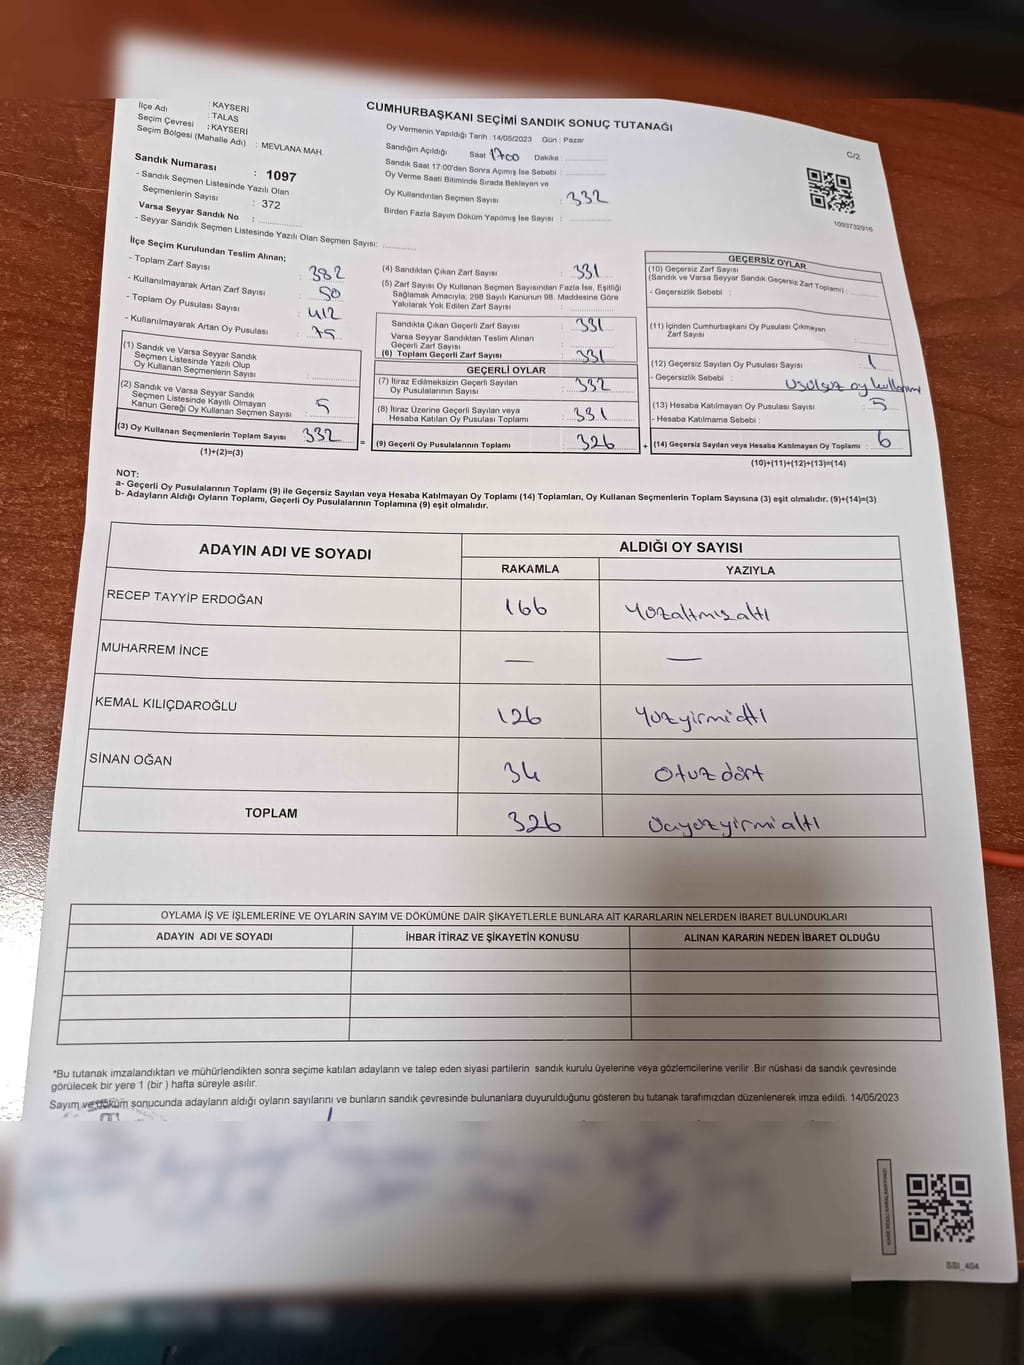 CUMHURBAŞKANI SEÇİMİ SANDIK SONUÇ TUTANAĞI
: KAYSERİ
İlçe Adı : TALAS
Seçim Çevresi : KAYSERİ
Seçim Bölgesi (Mahalle Adı) : MEVLANA MAH.
Sandık Numarası : 1097
- Sandık Seçmen Listesinde Yazılı Olan
Seçmenlerin Sayısı : 372
Varsa Seyyar Sandık No :
- Seyyar Sandık Seçmen Listesinde Yazılı Olan Seçmen Sayısı:
Oy Vermenin Yapıldığı Tarih :14/05/2023 Gün : Pazar
Sandığın Açıldığı Saat 1700 Dakika :
Sandık Saat 17:00'den Sonra Açılmış İse Sebebi :
Oy Verme Saati Bitiminde Sırada Bekleyen ve
Oy Kullandırılan Seçmen Sayısı : 332
Birden Fazla Sayım Döküm Yapılmış İse Sayısı :
C/2
1093732916
İlçe Seçim Kurulundan Teslim Alınan;
- Toplam Zarf Sayısı : 382
- Kullanılmayarak Artan Zarf Sayısı : 50
- Toplam Oy Pusulası Sayısı : 412
- Kullanılmayarak Artan Oy Pusulası : 75
(1) Sandık ve Varsa Seyyar Sandık
Seçmen Listesinde Yazılı Olup
Oy Kullanan Seçmenlerin Sayısı :
(2) Sandık ve Varsa Seyyar Sandık
Seçmen Listesinde Kayıtlı Olmayan
Kanun Gereği Oy Kullanan Seçmen Sayısı : 5
(3) Oy Kullanan Seçmenlerin Toplam Sayısı : 332 =
(1)+(2)=(3)
(4) Sandıktan Çıkan Zarf Sayısı : 331
(5) Zarf Sayısı Oy Kullanan Seçmen Sayısından Fazla İse, Eşitliği
Sağlamak Amacıyla, 298 Sayılı Kanunun 98. Maddesine Göre
Yakılarak Yok Edilen Zarf Sayısı :
Sandıkta Çıkan Geçerli Zarf Sayısı : 331
Varsa Seyyar Sandıktan Teslim Alınan
Geçerli Zarf Sayısı :
(6) Toplam Geçerli Zarf Sayısı : 331
GEÇERLİ OYLAR
(7) İtiraz Edilmeksizin Geçerli Sayılan
Oy Pusulalarının Sayısı : 332
(8) İtiraz Üzerine Geçerli Sayılan veya
Hesaba Katılan Oy Pusulası Toplamı : 331
(9) Geçerli Oy Pusulalarının Toplamı : 326 +
GEÇERSİZ OYLAR
(10) Geçersiz Zarf Sayısı
(Sandık ve Varsa Seyyar Sandık Geçersiz Zarf Toplamı) :
- Geçersizlik Sebebi :
(11) İçinden Cumhurbaşkanı Oy Pusulası Çıkmayan
Zarf Sayısı :
(12) Geçersiz Sayılan Oy Pusulası Sayısı : 1
- Geçersizlik Sebebi : usulsüz oy kullanımı
(13) Hesaba Katılmayan Oy Pusulası Sayısı : 5
- Hesaba Katılmama Sebebi :
(14) Geçersiz Sayılan veya Hesaba Katılmayan Oy Toplamı : 6
(10)+(11)+(12)+(13)=(14)
NOT:
a- Geçerli Oy Pusulalarının Toplamı (9) ile Geçersiz Sayılan veya Hesaba Katılmayan Oy Toplamı (14) Toplamları, Oy Kullanan Seçmenlerin Toplam Sayısına (3) eşit olmalıdır. (9)+(14)=(3)
b- Adayların Aldığı Oyların Toplamı, Geçerli Oy Pusulalarının Toplamına (9) eşit olmalıdır.
ADAYIN ADI VE SOYADI ALDIĞI OY SAYISI
RAKAMLA YAZIYLA
RECEP TAYYİP ERDOĞAN 166 Yüzaltmışaltı
MUHARREM İNCE — —
KEMAL KILIÇDAROĞLU 126 Yüzyirmialtı
SİNAN OĞAN 34 Otuzdört
TOPLAM 326 Üçyüzyirmialtı
OYLAMA İŞ VE İŞLEMLERİNE VE OYLARIN SAYIM VE DÖKÜMÜNE DAİR ŞİKAYETLERLE BUNLARA AİT KARARLARIN NELERDEN İBARET BULUNDUKLARI
ADAYIN ADI VE SOYADI İHBAR İTİRAZ VE ŞİKAYETİN KONUSU ALINAN KARARIN NEDEN İBARET OLDUĞU
*Bu tutanak imzalandıktan ve mühürlendikten sonra seçime katılan adayların ve talep eden siyasi partilerin sandık kurulu üyelerine veya gözlemcilerine verilir .Bir nüshası da sandık çevresinde
görülecek bir yere 1 (bir ) hafta süreyle asılır.
Sayım ve döküm sonucunda adayların aldığı oyların sayılarını ve bunların sandık çevresinde bulunanlara duyurulduğunu gösteren bu tutanak tarafımızdan düzenlenerek imza edildi. 14/05/2023
SSI_404